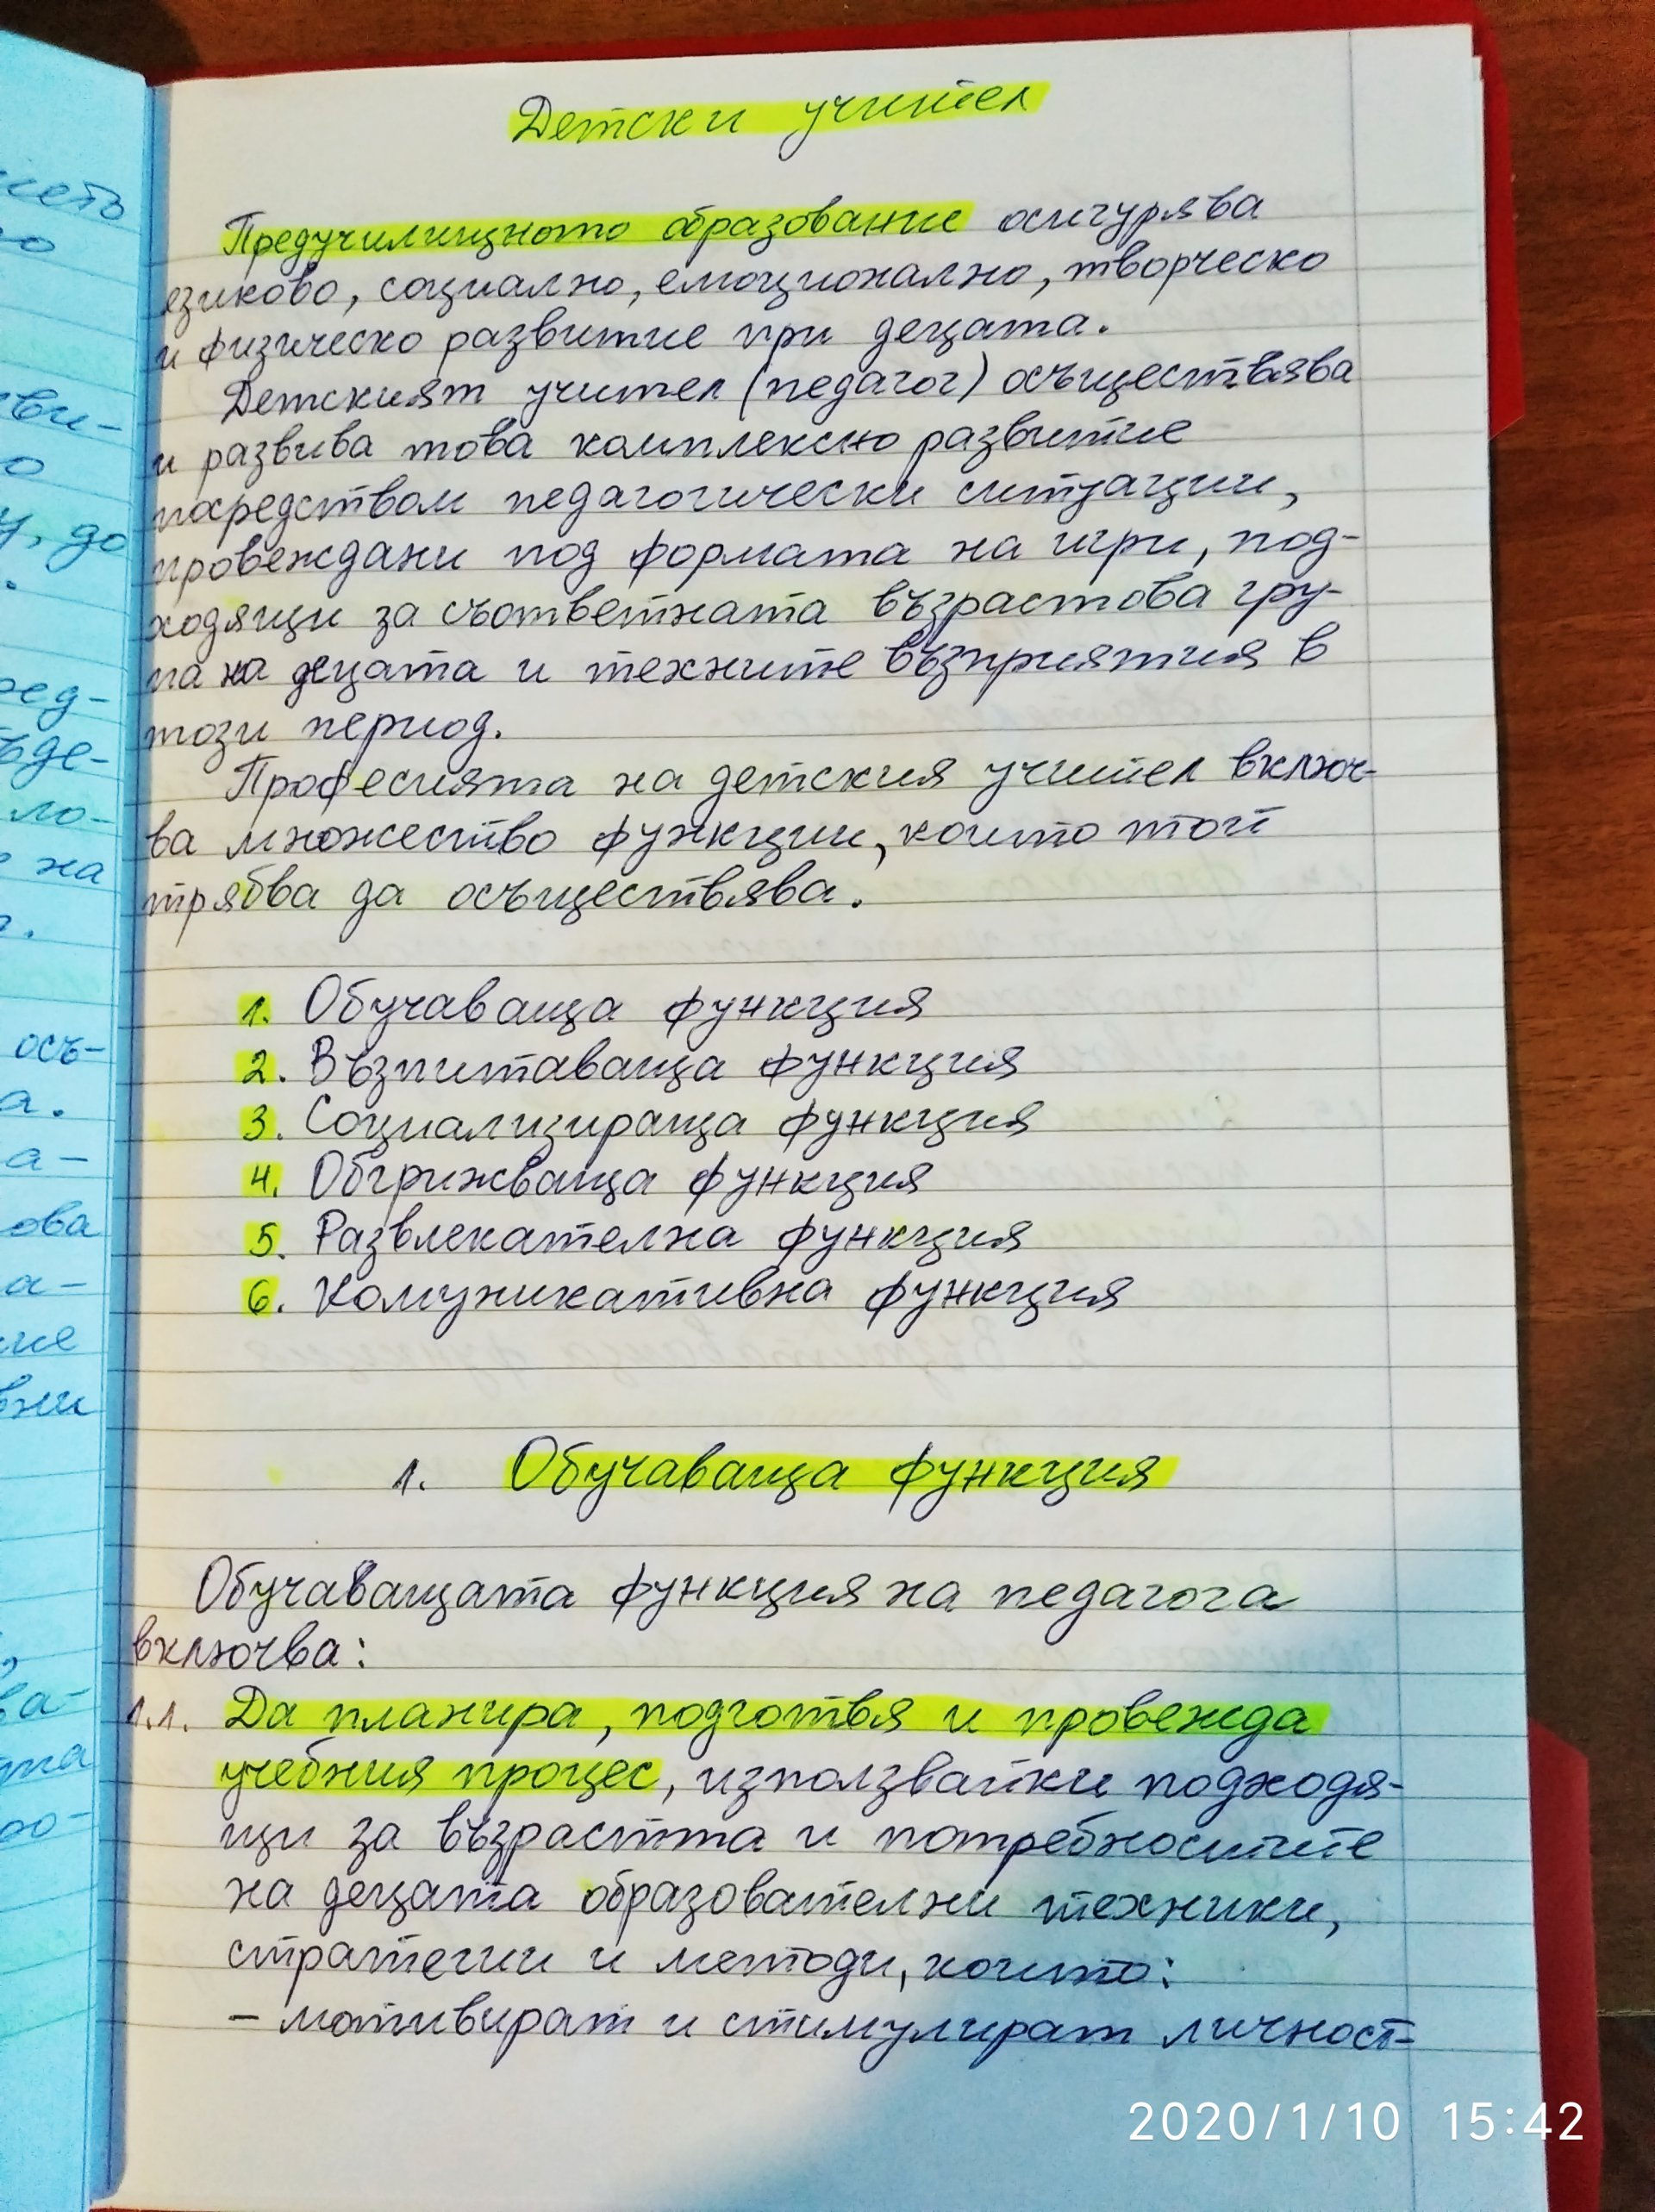 Детски учител
Предучилищното образование осигурява
езиково, социално, емоционално, творческо
и физическо развитие при децата.
Детският учител (педагог) осъществява
и развива това комплексно развитие
посредством педагогически ситуации,
провеждани под формата на игри, под-
ходящи за съответната възрастова гру-
па на децата и техните възприятия в
този период.
Професията на детския учител включ-
ва множество функции, които той
трябва да осъществява.
1. Обучаваща функция
2. Възпитаваща функция
3. Социализираща функция
4. Обгрижваща функция
5. Развлекателна функция
6. Комуникативна функция
1. Обучаваща функция
Обучаващата функция на педагога
включва:
1.1. Да планира, подготвя и провежда
учебния процес, използвайки подходя-
щи за възрастта и потребностите
на децата образователни техники,
стратегии и методи, които:
- мотивират и стимулират личност-
2020/1/10 15:42